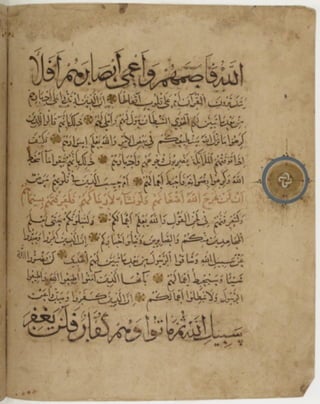 الله فأصمهم وأعمى أبصارهم أفلا
يتدبرون القرآن أم على قلوب أقفالها إن الذين ارتدوا على أدبارهم
من بعد ما تبين لهم الهدى الشيطان سول لهم وأملى لهم ذلك بأنهم قالوا للذين
كرهوا ما نزل الله سنطيعكم في بعض الأمر والله يعلم إسرارهم فكيف
إذا توفتهم الملائكة يضربون وجوههم وأدبارهم ذلك بأنهم اتبعوا ما أسخط
الله وكرهوا رضوانه فأحبط أعمالهم أم حسب الذين في قلوبهم مرض
أن لن يخرج الله أضغانهم ولو نشاء لأريناكهم فلعرفتهم بسيماهم
ولتعرفنهم في لحن القول والله يعلم أعمالكم ولنبلونكم حتى نعلم
المجاهدين منكم والصابرين ونبلو أخباركم إن الذين كفروا وصدوا
عن سبيل الله وشاقوا الرسول من بعد ما تبين لهم الهدى لن يضروا الله
شيئا وسيحبط أعمالهم يا أيها الذين آمنوا أطيعوا الله وأطيعوا
الرسول ولا تبطلوا أعمالكم إن الذين كفروا وصدوا عن
سبيل الله ثم ماتوا وهم كفار فلن يغفر